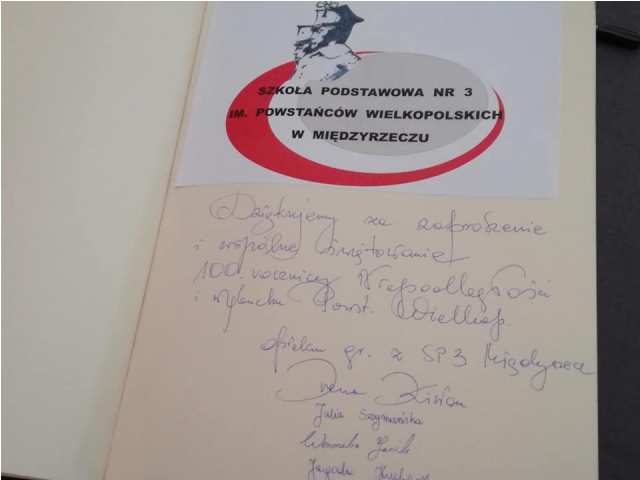 SZKOŁA PODSTAWOWA NR 3
IM. POWSTAŃCÓW WIELKOPOLSKICH
W MIĘDZYRZECZU
Dziękujemy za zaproszenie
i wspólne świętowanie
100. rocznicy Niepodległości
i wybuchu Powst. Wielkop.
opiekun gr. z SP3 Międzyrzecz
Irena
Julia Szymańska
Weronika
Jagoda